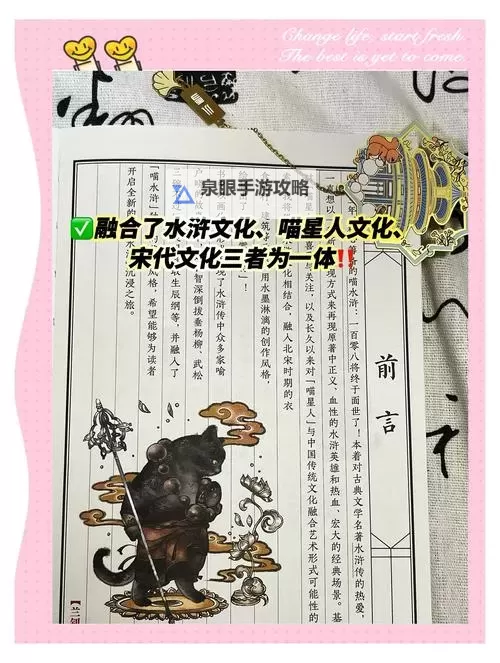 Change life, start fresh.
The best is yet to come.
泉眼手游攻略
✅融合了水浒文化、喵星人文化、
宋代文化三者为一体‼️
前言
的喵水浒：一百零八将终于面世了！本着对古典文学名著水浒传的热爱，
一直想以 现方式来再现原著中正义、血性的水浒英雄和热血、宏大的经典场景。基
与关注，以及长久以来对「喵星人」与中国传统文化融合艺术形式可能性的
化相结合，融入北宋时期的衣
建筑 用水墨淋漓的创作风格，
了水浒传中众多家喻
户 智深倒拔垂杨柳、武松
三 取生辰纲等，并融入了
「喵水浒」 风格，希望能够为读者
开启全新的 沉浸之旅。